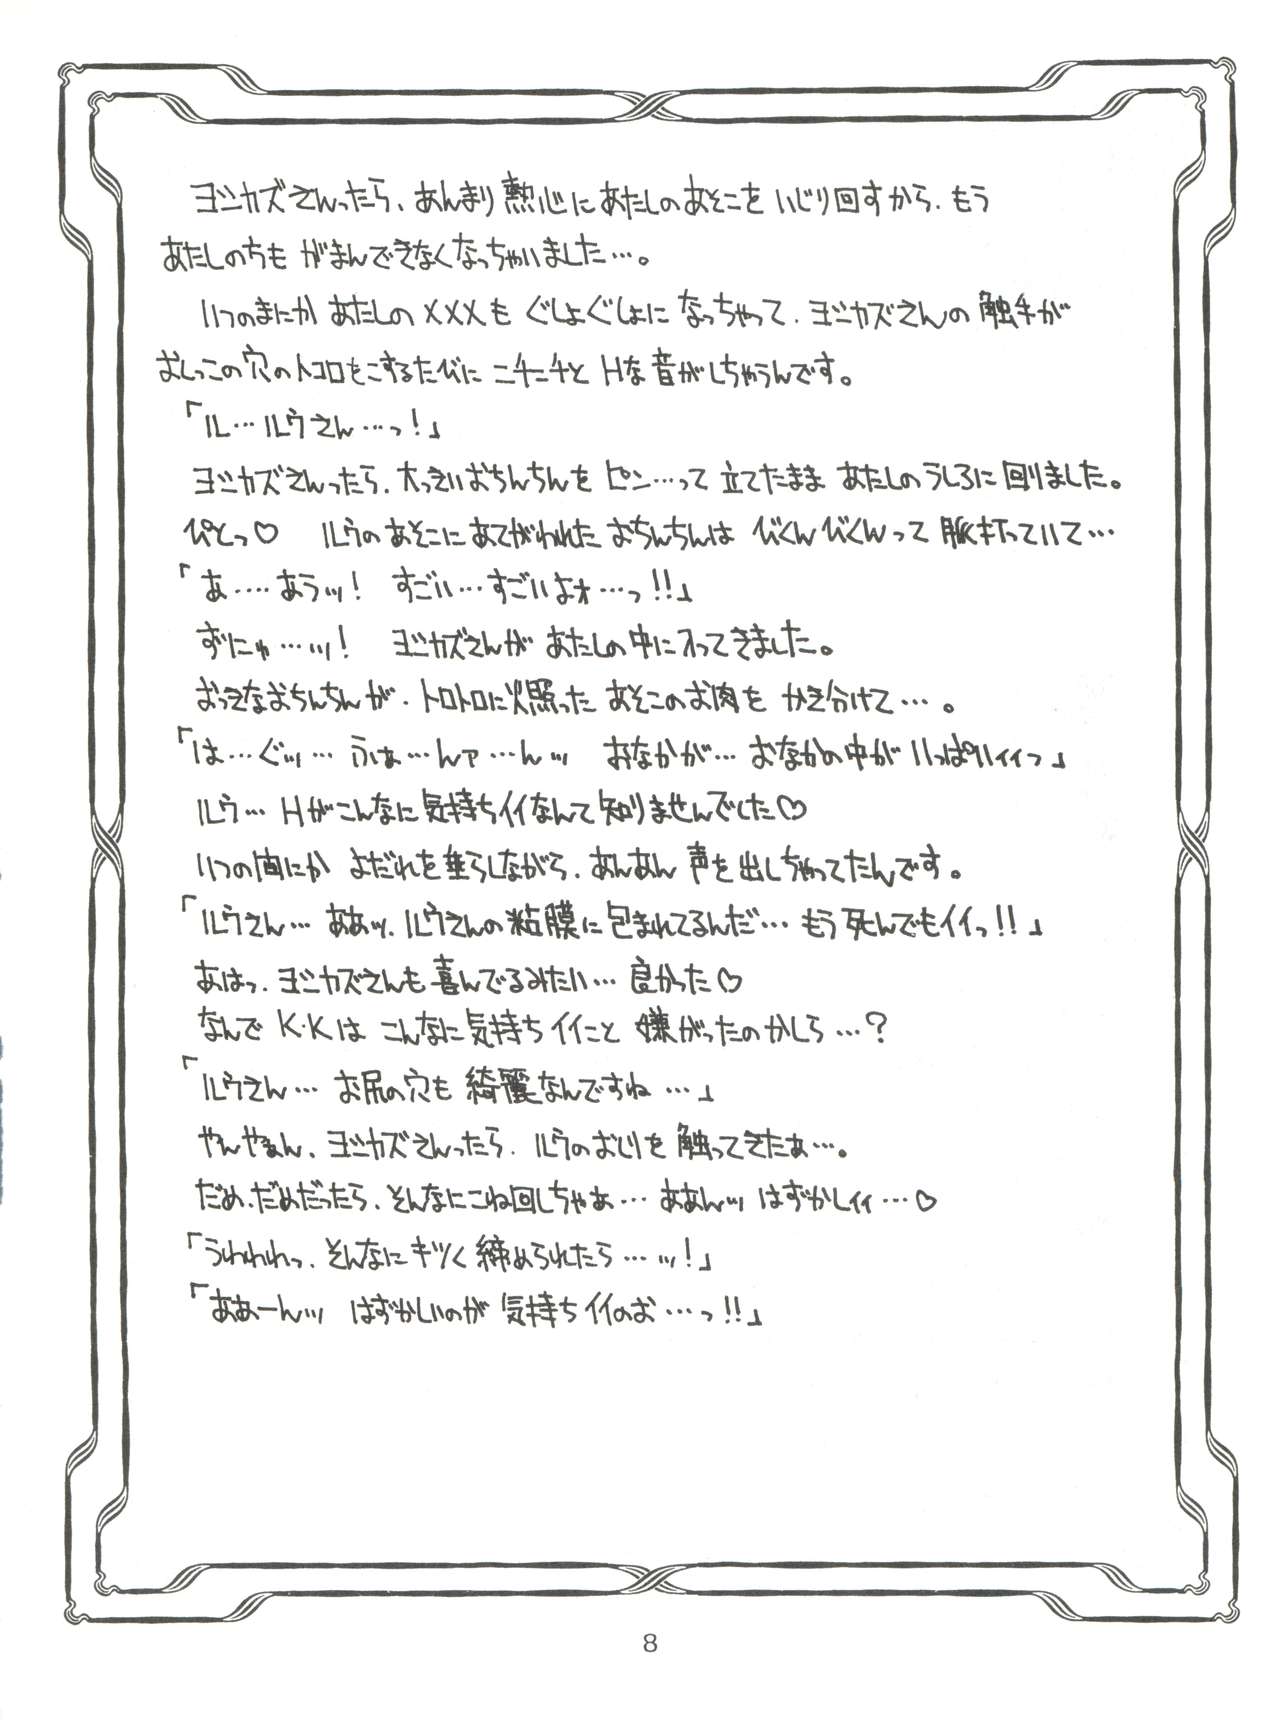 ヨシカズさんったら、あんまり熱心にあたしのあそこをいじり回すから、もう
あたしのちも がまんできなくなっちゃいました…。
いつのまにか あたしの×××も ぐしょぐしょに なっちゃって、ヨシカズさんの 触手が
おしっこの穴のトコロをこするたびに ニチニチと Hな音がしちゃうんです。
「ル…ルウさん…っ!」
ヨシカズさんったら、大っきいおちんちんを ピン…って 立てたまま あたしのうしろに回りました。
ぴとっ♡ ルウのあそこにあてがわれた おちんちんは びくんびくんって 脈打っていて…
「あ…‥あうッ! すごい…すごいよォ…っ!!」
ずにゅ…ッ! ヨシカズさんが あたしの中に入ってきました。
おっきなおちんちんが、トロトロに火照った あそこのお肉を かき分けて…。
「は…ぐッ…ふぁ…んァ…んッ おなかが…おなかの中が いっぱいィィっ」
ルウ…Hがこんなに気持ちイイなんて知りませんでした♡
いつの間にか よだれを垂らしながら、あんあん 声を出しちゃってたんです。
「ルウさん…ああッ、ルウさんの粘膜に包まれてるんだ…もう死んでもイイっ!!」
あはっ、ヨシカズさんも喜んでるみたい…良かった♡
なんで K・Kは こんなに気持ちイイこと 嫌がったのかしら…?
「ルウさん…お尻の穴も 綺麗なんですね…」
やんやぁん、ヨシカズさんったら、ルウのおしりを 触ってきたぁ…。
だめ、だめだったら、そんなにこね回しちゃぁ…ああんッ はずかしィィ…♡
「うわわわっ、そんなにキツく締められたら…ッ!」
「ああーんッ はずかしいのが 気持ちイイのぉ…っ!!」
8